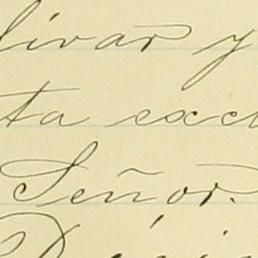 livar y
ta exc
Señor.